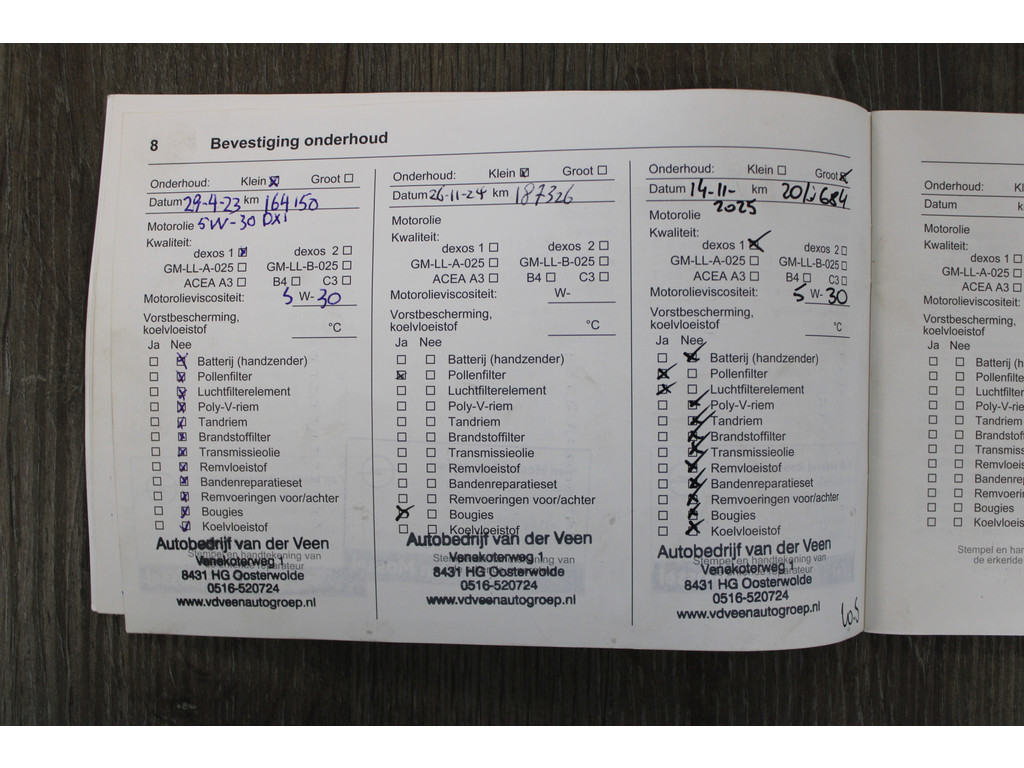 8 Bevestiging onderhoud
Onderhoud: Klein ☒ Groot ☐
Datum 29-4-23 km 164150
Motorolie 5W-30 DX1
Kwaliteit:
dexos 1 ☒ dexos 2 ☐
GM-LL-A-025 ☐ GM-LL-B-025 ☐
ACEA A3 ☐ B4 ☐ C3 ☐
Motorolieviscositeit: 5 W-30
Vorstbescherming,
koelvloeistof °C
Ja Nee
☐ ☒ Batterij (handzender)
☐ ☒ Pollenfilter
☐ ☒ Luchtfilterelement
☐ ☒ Poly-V-riem
☐ ☒ Tandriem
☐ ☒ Brandstoffilter
☐ ☒ Transmissieolie
☐ ☒ Remvloeistof
☐ ☒ Bandenreparatieset
☐ ☒ Remvoeringen voor/achter
☐ ☒ Bougies
☐ ☒ Koelvloeistof
Autobedrijf van der Veen
Stempel en handtekening van
Venekoterweg 1
8431 HG Oosterwolde
0516-520724
www.vdveenautogroep.nl
Onderhoud: Klein ☒ Groot ☐
Datum 26-11-24 km 187326
Motorolie
Kwaliteit:
dexos 1 ☐ dexos 2 ☐
GM-LL-A-025 ☐ GM-LL-B-025 ☐
ACEA A3 ☐ B4 ☐ C3 ☐
Motorolieviscositeit: W-
Vorstbescherming,
koelvloeistof °C
Ja Nee
☐ ☐ Batterij (handzender)
☒ ☐ Pollenfilter
☐ ☐ Luchtfilterelement
☐ ☐ Poly-V-riem
☐ ☐ Tandriem
☐ ☐ Brandstoffilter
☐ ☐ Transmissieolie
☐ ☐ Remvloeistof
☐ ☐ Bandenreparatieset
☐ ☐ Remvoeringen voor/achter
☒ ☐ Bougies
☐ ☐ Koelvloeistof
Autobedrijf van der Veen
Venekoterweg 1
8431 HG Oosterwolde
0516-520724
www.vdveenautogroep.nl
Onderhoud: Klein ☐ Groot ☒
Datum 14-11- km
2025
Motorolie
Kwaliteit:
dexos 1 ☒ dexos 2 ☐
GM-LL-A-025 ☐ GM-LL-B-025 ☐
ACEA A3 ☐ B4 ☐ C3 ☐
Motorolieviscositeit: 5 W-30
Vorstbescherming,
koelvloeistof °C
Ja Nee
☐ ☒ Batterij (handzender)
☒ ☐ Pollenfilter
☒ ☐ Luchtfilterelement
☐ ☒ Poly-V-riem
☐ ☒ Tandriem
☐ ☒ Brandstoffilter
☐ ☒ Transmissieolie
☐ ☒ Remvloeistof
☐ ☒ Bandenreparatieset
☐ ☒ Remvoeringen voor/achter
☐ ☒ Bougies
☐ ☒ Koelvloeistof
Autobedrijf van der Veen
Stempel en handtekening van
Venekoterweg 1
8431 HG Oosterwolde
0516-520724
www.vdveenautogroep.nl
Onderhoud: Kl
Datum k
Motorolie
Kwaliteit:
dexos 1 ☐
GM-LL-A-025 ☐
ACEA A3 ☐
Motorolieviscositeit:
Vorstbescherming,
koelvloeistof
Ja Nee
☐ ☐ Batterij (h
☐ ☐ Pollenfilte
☐ ☐ Luchtfilter
☐ ☐ Poly-V-rie
☐ ☐ Tandriem
☐ ☐ Brandstoff
☐ ☐ Transmiss
☐ ☐ Remvloeis
☐ ☐ Bandenrep
☐ ☐ Remvoerin
☐ ☐ Bougies
☐ ☐ Koelvloeis
Stempel en han
de erkende